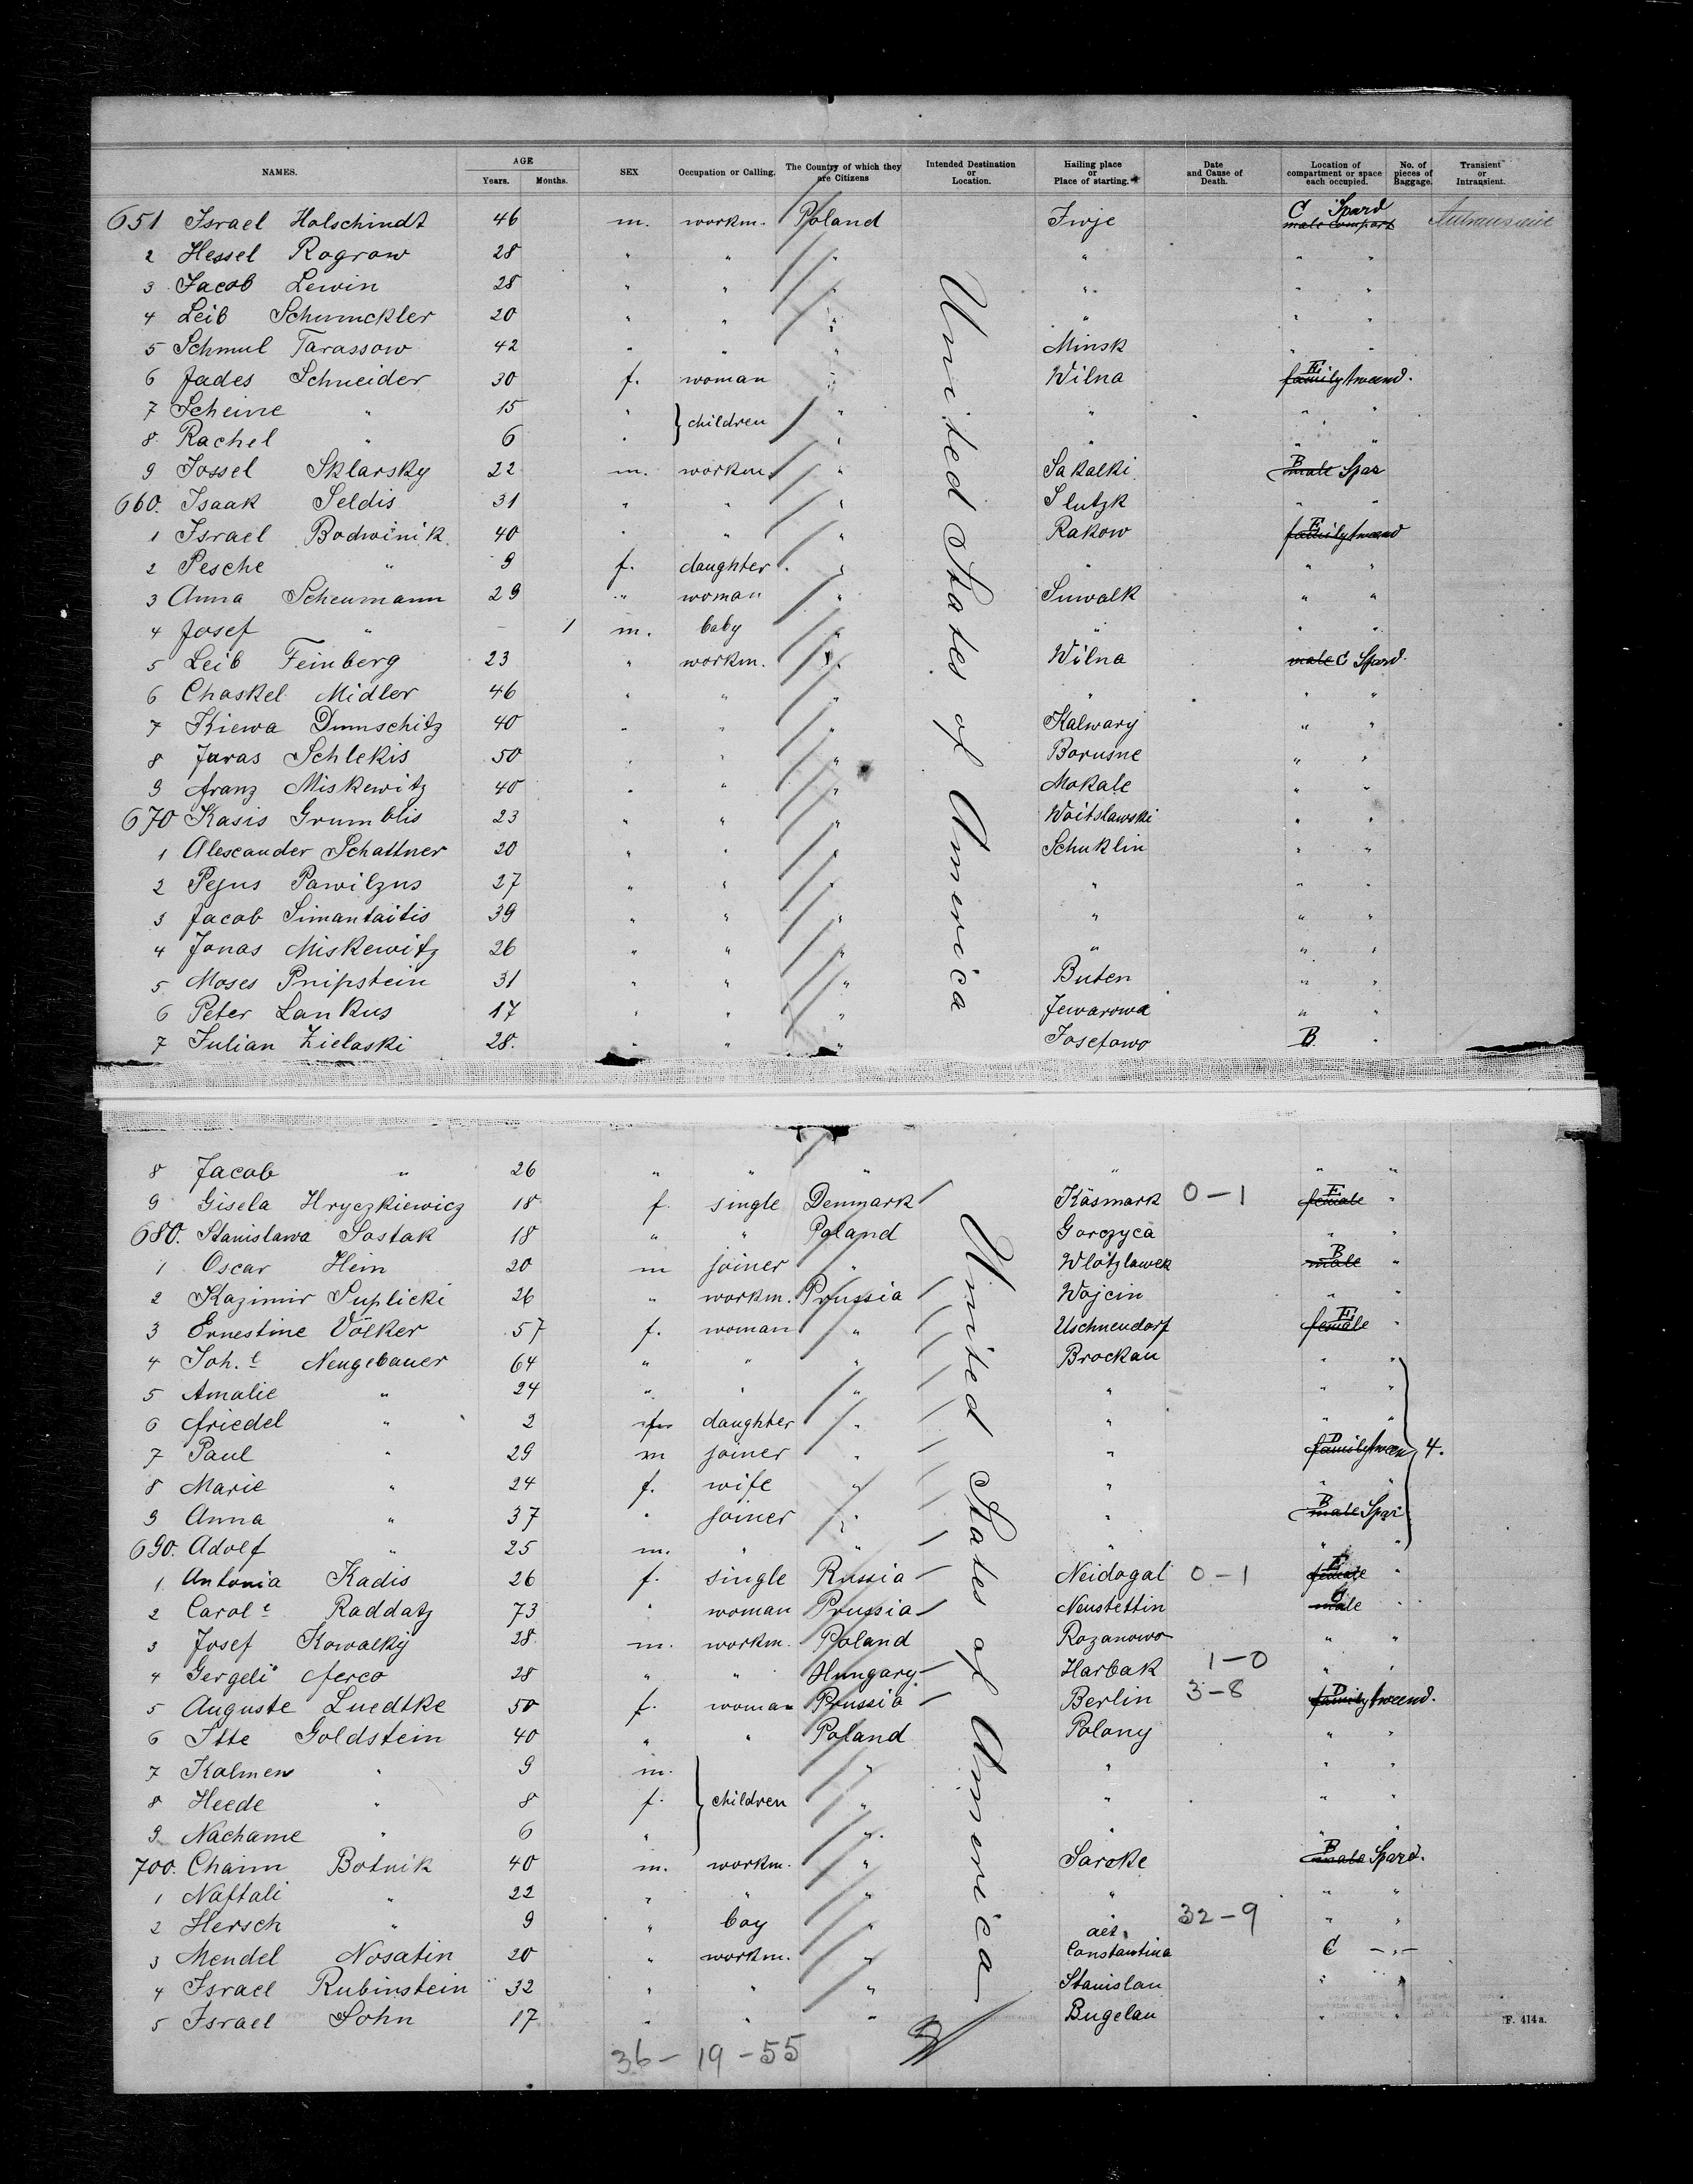 NAMES. AGE Years. Months. SEX Occupation or Calling. The Country of which they are Citizens Intended Destination or Location. Hailing place or Place of starting. Date and Cause of Death. Location of compartment or space each occupied. No. of pieces of Baggage. Transient or Intransient.
651 Israel Holschindt 46 m. workm. Poland Iwje C Spard male compart
2 Hessel Rogrow 28 " " " " " "
3 Jacob Lewin 28 " " " " " "
4 Leib Schumckler 20 " " " " " "
5 Schmul Tarassow 42 " " " Minsk " "
6 Jades Schneider 30 f. woman " Wilna E family tweend.
7 Scheine " 15 " } children " " " "
8 Rachel " 6 " " " " "
9 Jossel Sklarsky 22 m. workm. " Sakalki B male Spar
660. Isaak Seldis 31 " " " Slutzk " "
1 Israel Bodwinik 40 " " " Rakow E family tweend
2 Pesche " 9 f. daughter " " " "
3 Anna Scheumann 29 " woman " Suwalk " "
4 Josef " - 1 m. baby " " " "
5 Leib Feinberg 23 " workm. " Wilna male C Spard.
6 Chaskel Midler 46 " " " " " "
7 Kiewa Dumschitz 40 " " " Kalwary " "
8 Juras Schlekis 50 " " " Borusne " "
9 Franz Miskewitz 40 " " " Mokale " "
670 Kasis Grumblis 23 " " " Woitslawski " "
1 Alexander Schattner 20 " " " Schuklin " "
2 Pejus Pawilzus 27 " " " " " "
3 Jacob Simantaitis 39 " " " " " "
4 Jonas Miskewitz 26 " " " " " "
5 Moses Pripstein 31 " " " Buten " "
6 Peter Lankus 17 " " " Jewarowa " "
7 Julian Zielaski 28. " " " Josefowo B "
United States of America
8 Jacob " 26 " " " " " "
9 Gisela Hryczkiewicz 18 f. single Denmark Käsmark 0-1 E female "
680. Stanislawa Sostak 18 " " Poland Gorczyca " "
1 Oscar Hein 20 m joiner " Wlotzlawek B male "
2 Kazimir Suplicki 26 " workm. Prussia Wojcin " "
3 Ernestine Völker 57 f. woman " Uschneudorf E female "
4 Joh.e Neugebauer 64 " " " Brockau " "
5 Amalie " 24 " " " " " "
6 Friedel " 2 f. daughter " " " "
7 Paul " 29 m joiner " " D family tween 4.
8 Marie " 24 f. wife " " " "
9 Anna " 37 " joiner " " B male Spar
690. Adolf " 25 m. " " " " "
1 Antonia Kadis 26 f. single Russia Neidogal 0-1 E female "
2 Carol.e Raddatz 73 " woman Prussia Neustettin C male "
3 Josef Kowalky 28 m. workm. Poland Rozanowo " "
4 Gergeli Ferco 28 " " Hungary Harbak 1-0 " "
5 Auguste Luedtke 50 f. woman Prussia Berlin 3-8 D family tweend.
6 Itte Goldstein 40 " " Poland Polony " "
7 Kalmen " 9 m. " " " "
8 Heede " 8 f. } children " " " "
9 Nachame " 6 " " " " "
700. Chaim Botnik 40 m. workm. " Saroke B male Spard.
1 Naftali " 22 " " " " " "
2 Hersch " 9 " boy " 32-9 " "
3 Mendel Nosatin 20 " workm. " Constantina C -"-
4 Israel Rubinstein 32 " " " Stanislau " "
5 Israel Sohn 17 " " " Bugelau " "
United States of America
36-19-55
F. 414a.